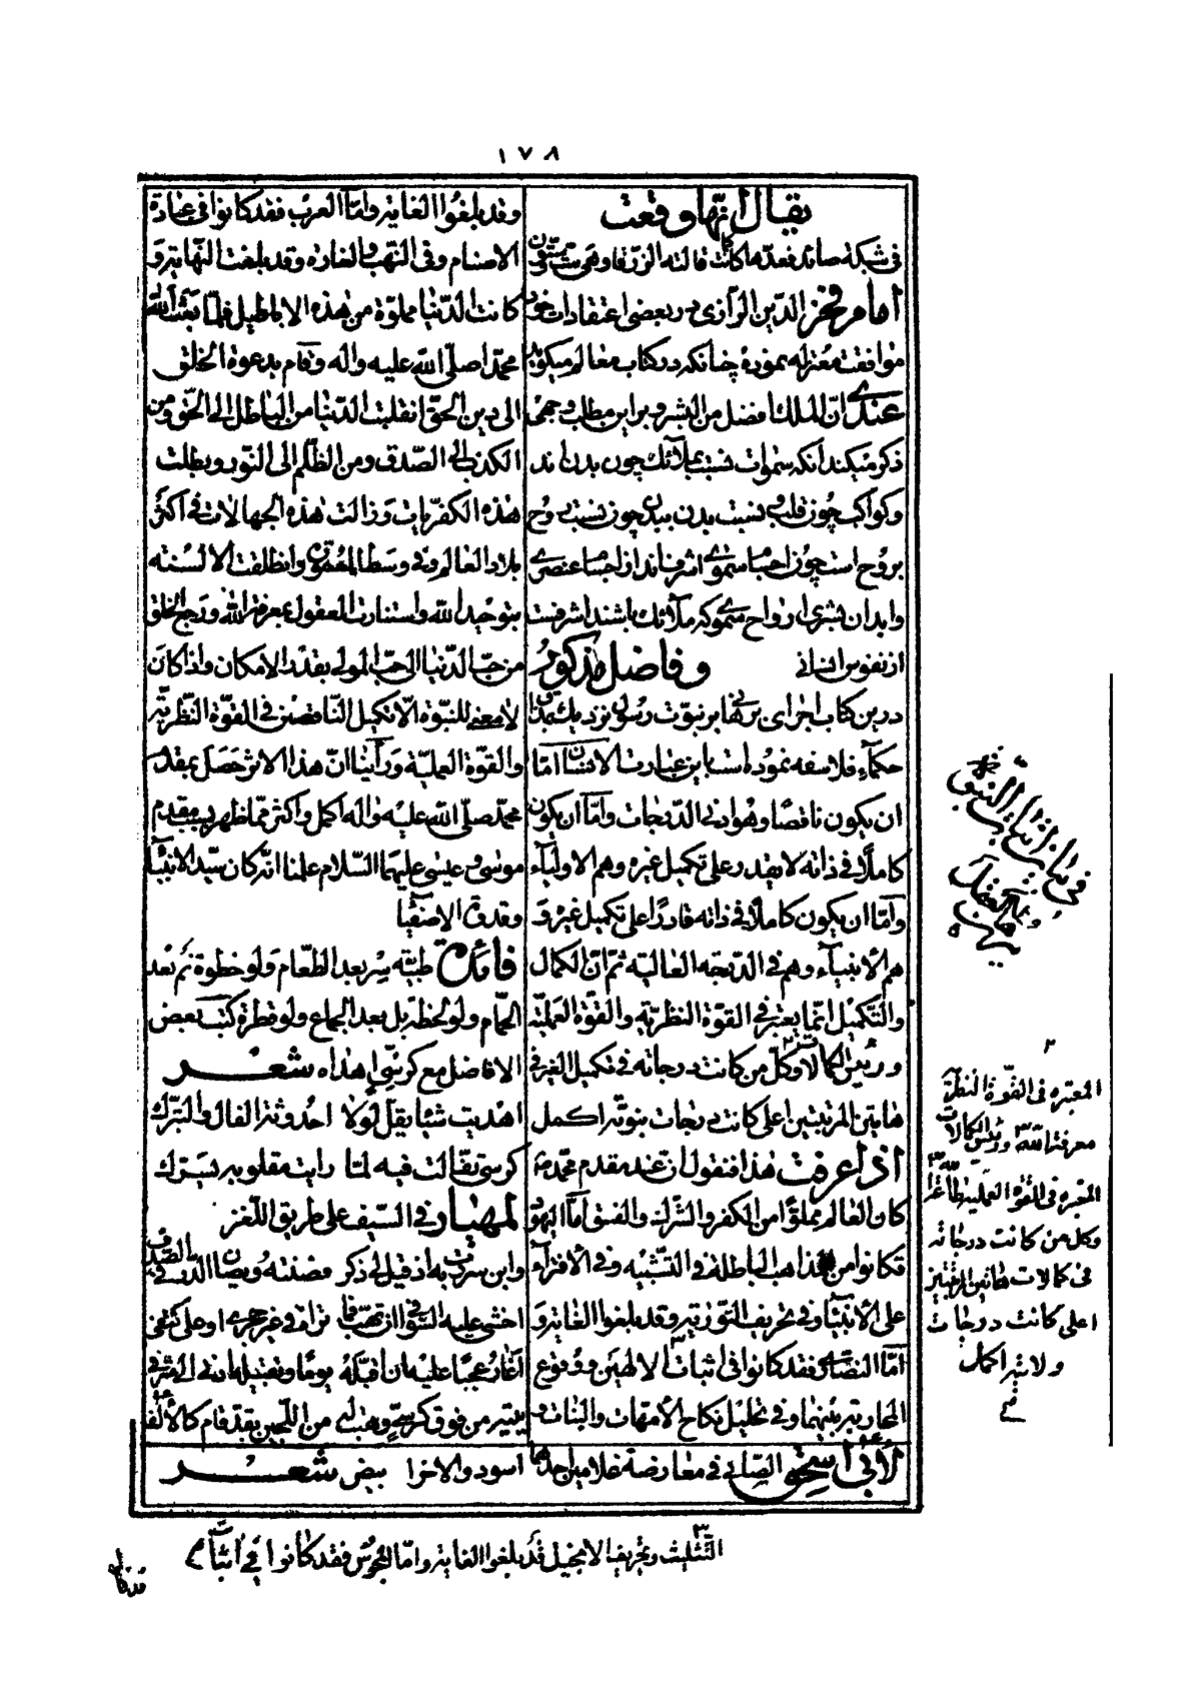 ١٧٨
يقال انها وقعت
فى شبكة صائد فعدها كما قالته الزرقا وهى ست وستون
امام فخر الدين الرازى در بعضى اعتقادات خود
موافقت معتزله نموده چنانكه در كتاب معالم ميكويد
عندى ان الملك افضل من البشر و بر اين مطلب وجهى
ذكر ميكند آنكه سموات نسبت بملائك چون بدن اند
وكواكب چون قلب و نسبت بدن ببدن چون نسبت روح
بروح است چون اجسام سموى اشرف اند از اجسام عنصرى
وابدان بشرى ارواح سموى كه ملائك باشند اشرفست
از نفوس انسانى وفاضل مذكور
درين كتاب اجراى برهانى بر نبوت رسول نزديك بمذاق
حكماء فلاسفه نموده است باين عبارت الانسان اما
ان يكون ناقصا وهو ادنى الدرجات واما ان يكون
كاملا فى ذاته لا يقدر على تكميل غيره وهم الاولياء
واما ان يكون كاملا فى ذاته قادرا على تكميل غيره و
هم الانبياء وهم فى الدرجه العالية ثم ان الكمال
والتكميل انما يعتبر فى القوة النظرية والقوة العملية
ورئيس الكمالات وكل من كانت درجاته فى تكميل الغير فى
هاتين المرتبتين اعلى كانت درجات نبوته اكمل
اذا عرفت هذا فنقول ان عند مقدم محمد ص
كان العالم مملوا من الكفر والشرك والفسق اما اليهود
فكانوا من المذاهب الباطلة فى التشبيه وفى الافتراء
على الانبياء وفى تحريف التورية وقد بلغوا الغاية و
اما النصارى فقد كانوا فى اثبات الالهين ووقوع
المحاربة بينهما وفى تحليل نكاح الامهات والبنات
وقد بلغوا الغاية واما العرب فقد كانوا فى عبادة
الاصنام وفى النهب والغارة وقد بلغت النهاية و
كانت الدنيا مملوة من هذه الاباطيل فلما بعث الله
محمدا صلى الله عليه واله وقام بدعوة الخلق
الى دين الحق انقلبت الدنيا من الباطل الى الحق ومن
الكذب الى الصدق ومن الظلم الى النور وبطلت
هذه الكفريات وزالت هذه الجهالات فى اكثر
بلاد العالم وفى وسط المعمورة وانطلقت الالسنة
بتوحيد الله واستنارت العقول بمعرفة الله ورجع الخلق
من حب الدنيا الى حب المولى بقدر الامكان واذا كان
لا معنى للنبوة الا تكميل الناقصين فى القوة النظرية
والقوة العملية ورأينا ان هذا الاثر حصل بمقدم
محمد صلى الله عليه واله اكمل واكثر مما ظهر بسبب مقدم
موسى وعيسى عليهما السلام علمنا انه كان سيد الانبياء
وقدوة الاصفيا
فائدة طبيه سر بعد الطعام ولو خطوة نم بعد
الحمام ولو لحظة بل بعد الجماع ولو قطرة كتب بعض
الافاضل مع كرسى اهداه شعر
اهديت شيئا يقل لولا احدوثة الفال والتبرك
كرسى تفالت فيه لما رايت مقلوبه يسرك
لمهيار فى السيف على طريق اللغز
وابن سررت به اذ قيل لى ذكر فصنته ويصان الدر فى الصدف
اخشى عليه السوافى ان تهب فما تراه فى غير حجرى او على كتفى
اغار عجبا عليه ان اقبله يوما وتقبيله ادنى الى شرفى
من فوق كرسى وهب لى من اللجين بقد قام كالالف
لابى اسحق الصابى فى معارضة غلامين احدهما اسود والاخر ابيض شعر
التثليث وتحريف الانجيل قد بلغوا الغاية واما المجوس فقد كانوا فى اثبات
المعتبره فى القوة النظرية
معرفة الله ورئيس الكمالات
المعتبره فى القوه العملية طاعة الله
وكل من كانت درجاته
فى كمالات هاتين المرتبتين
اعلى كانت درجات
ولايته اكمل